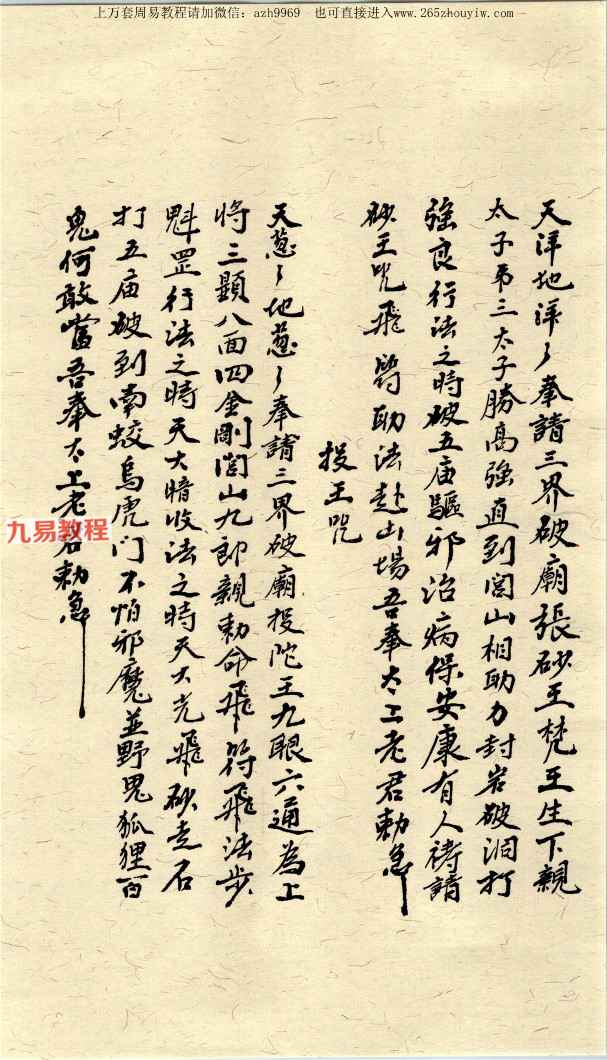 上万套周易教程请加微信：azh9969 也可直接进入www.265zhouyiw.com
天洋地洋々奉請三界破廟張砂王梵王生下親
太子弟三太子勝高強直到閭山相助力封岩破洞打
強良行法之時破五庙驅邪治病保安康有人祷請
砂王咒飛符助法赴山場吾奉太上老君勅急
投王咒
天葱々地葱々奉請三界破廟投陀王九眼六通為上
将三頭八面四金剛閭山九郎親勅命飛符飛法步
魁罡行法之時天大暗收法之時天大光飛砂走石
打五庙破到南蛟烏虎门不怕邪魔並野鬼狐狸百
鬼何敢當吾奉太上老君勅急
九易教程